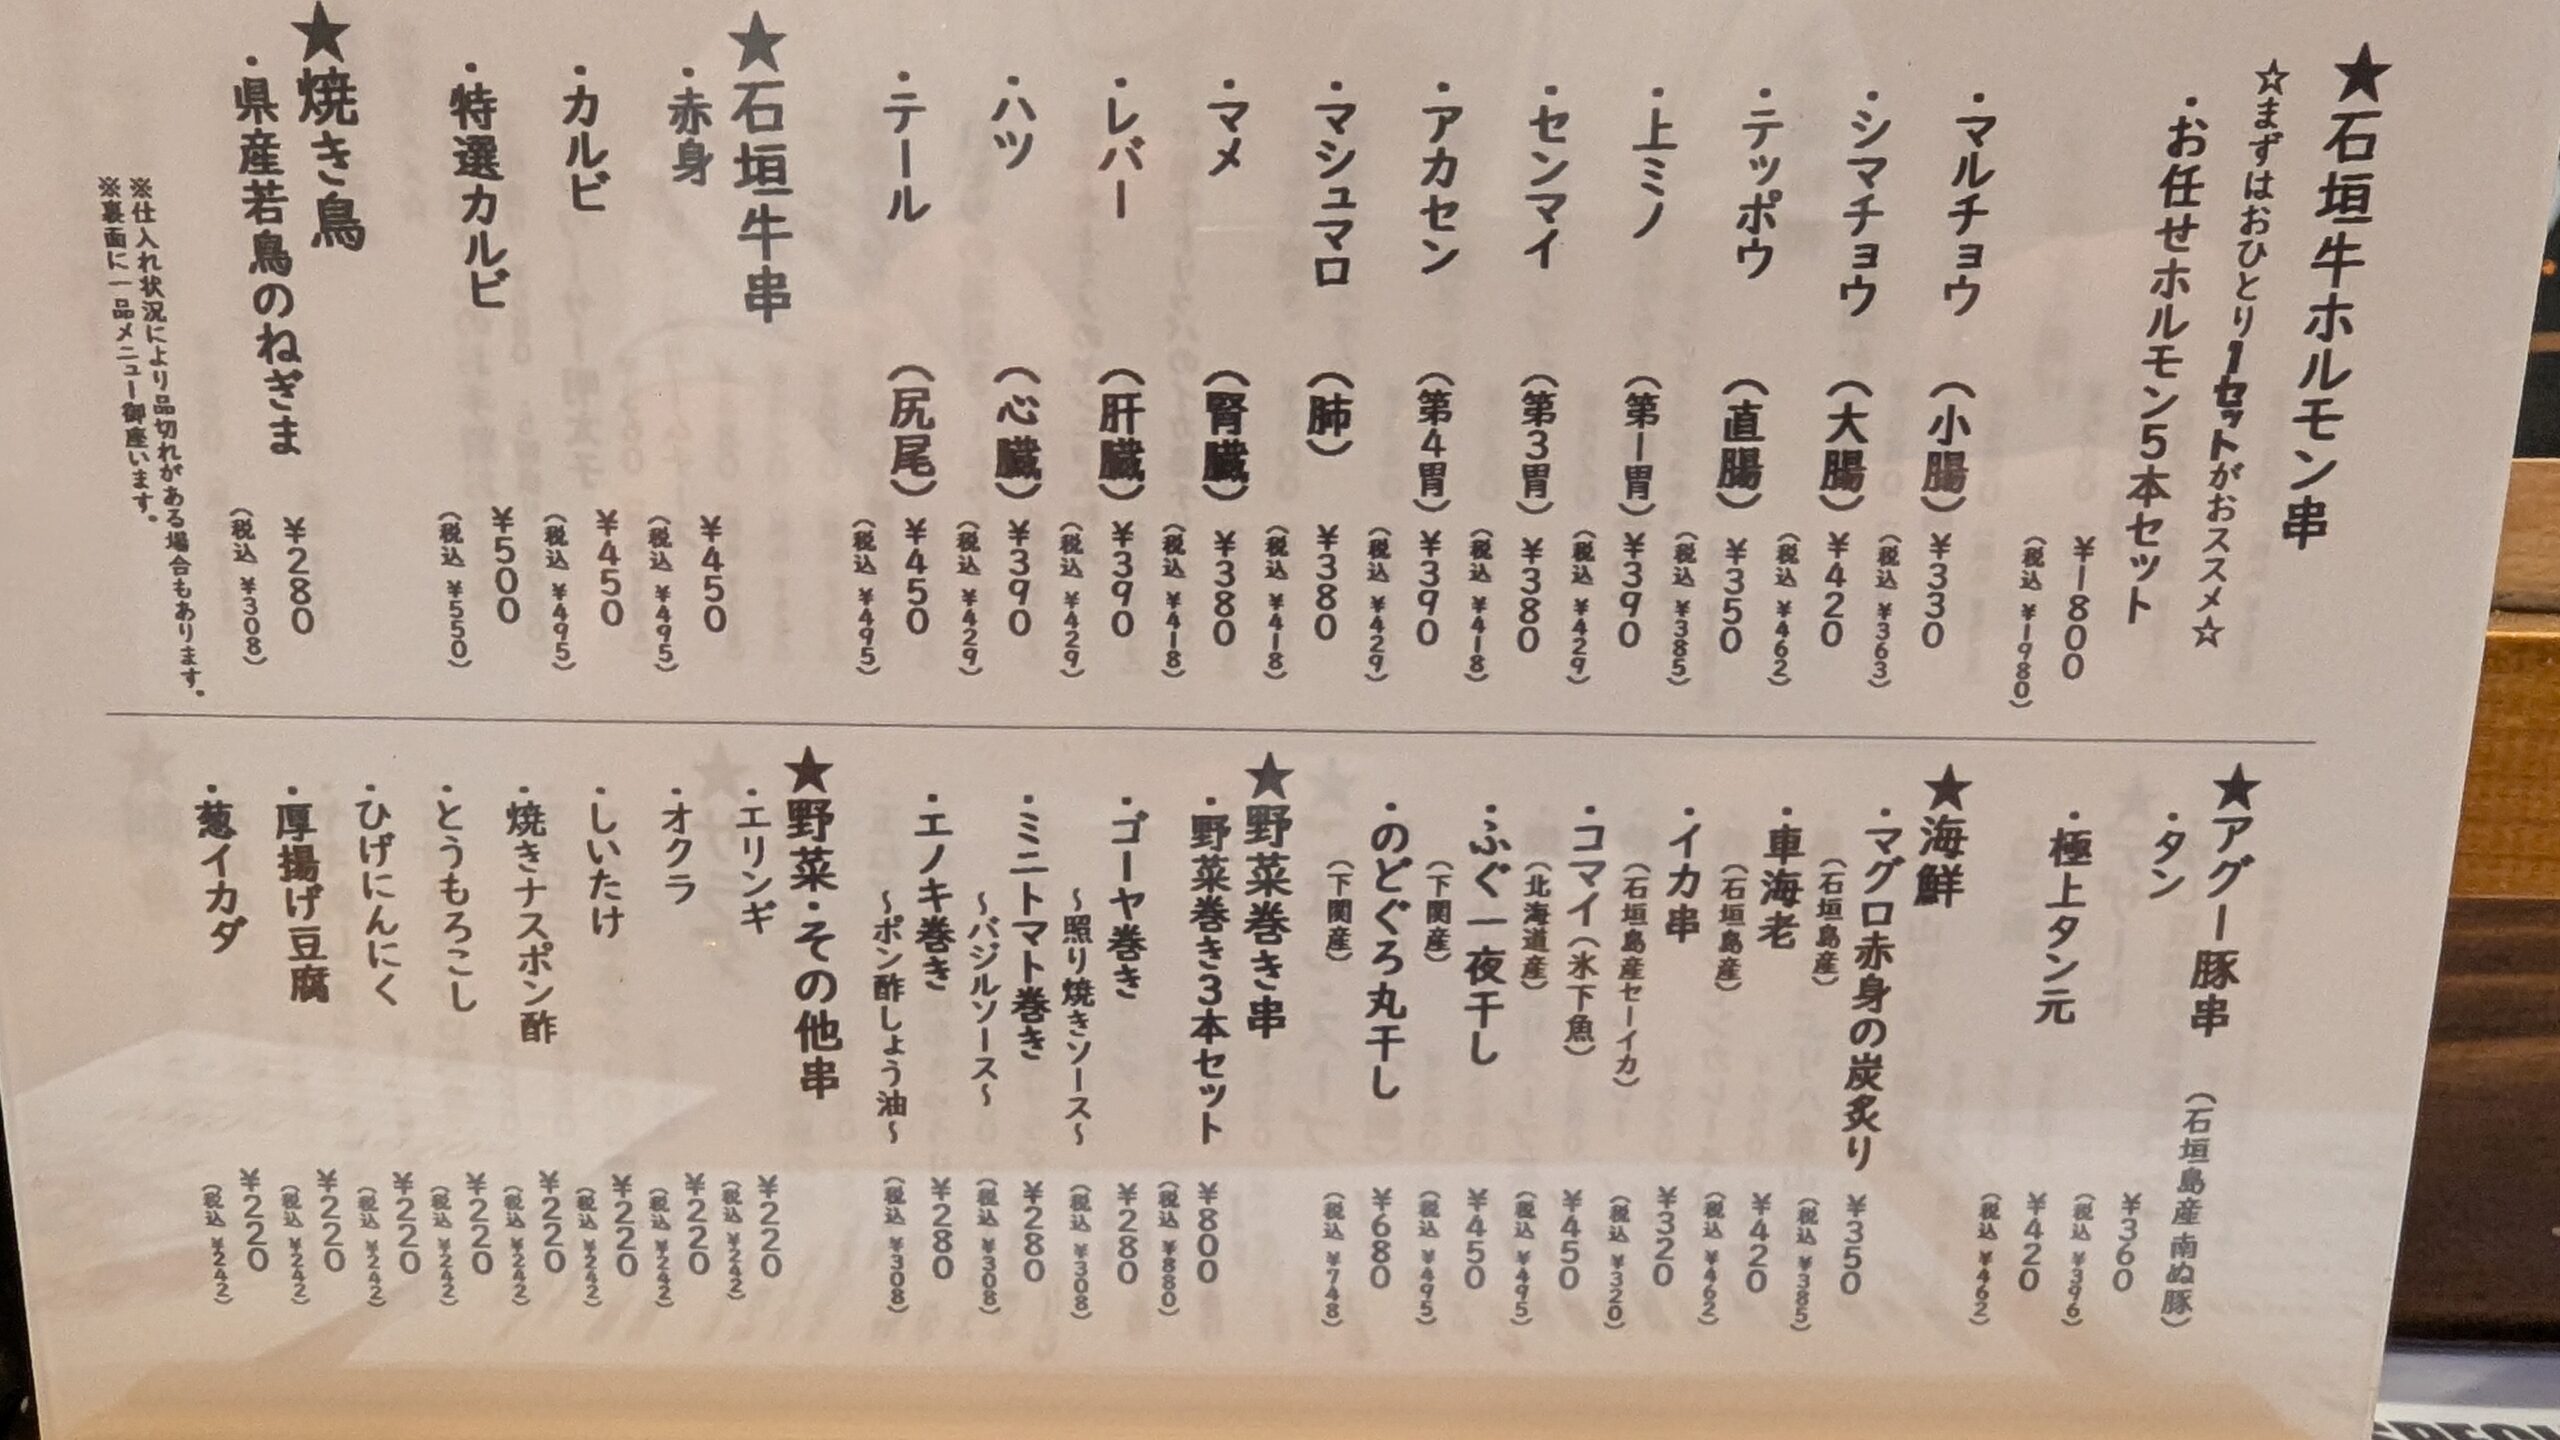 ★石垣牛ホルモン串
☆まずはおひとり1セットがおススメ☆
・お任せホルモン5本セット
¥1800
(税込 ¥1980)
・マルチョウ (小腸) ¥330
(税込 ¥363)
・シマチョウ (大腸) ¥420
(税込 ¥462)
・テッポウ (直腸) ¥350
(税込 ¥385)
・上ミノ (第1胃) ¥390
(税込 ¥429)
・センマイ (第3胃) ¥380
(税込 ¥418)
・アカセン (第4胃) ¥390
(税込 ¥429)
・マシュマロ (肺) ¥380
(税込 ¥418)
・マメ (腎臓) ¥380
(税込 ¥418)
・レバー (肝臓) ¥390
(税込 ¥429)
・ハツ (心臓) ¥390
(税込 ¥429)
・テール (尻尾) ¥450
(税込 ¥495)
★石垣牛串
・赤身 ¥450
(税込 ¥495)
・カルビ ¥450
(税込 ¥495)
・特選カルビ ¥500
(税込 ¥550)
★焼き鳥
・県産若鳥のねぎま ¥280
(税込 ¥308)
※仕入れ状況により品切れがある場合もあります。
※裏面に一品メニュー御座います。
★アグー豚串 (石垣島産南ぬ豚)
・タン ¥360
(税込 ¥396)
・極上タン元 ¥420
(税込 ¥462)
★海鮮
・マグロ赤身の炭炙り ¥350
(石垣島産) (税込 ¥385)
・車海老 ¥420
(石垣島産) (税込 ¥462)
・イカ串 ¥320
(石垣島産セーイカ) (税込 ¥320)
・コマイ(氷下魚) ¥450
(北海道産) (税込 ¥495)
・ふぐ一夜干し ¥450
(下関産) (税込 ¥495)
・のどぐろ丸干し ¥680
(下関産) (税込 ¥748)
★野菜巻き串
・野菜巻き3本セット ¥800
(税込 ¥880)
・ゴーヤ巻き ¥280
～照り焼きソース～ (税込 ¥308)
・ミニトマト巻き ¥280
～バジルソース～ (税込 ¥308)
・エノキ巻き ¥280
～ポン酢しょう油～ (税込 ¥308)
★野菜・その他串
・エリンギ ¥220
(税込 ¥242)
・オクラ ¥220
(税込 ¥242)
・しいたけ ¥220
(税込 ¥242)
・焼きナスポン酢 ¥220
(税込 ¥242)
・とうもろこし ¥220
(税込 ¥242)
・ひげにんにく ¥220
(税込 ¥242)
・厚揚げ豆腐 ¥220
(税込 ¥242)
・葱イカダ ¥220
(税込 ¥242)